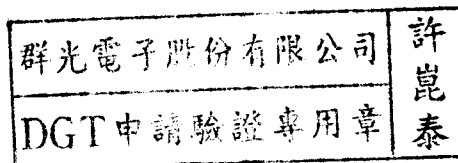 群光電子股份有限公司
DGT申請驗證專用章
許崑泰